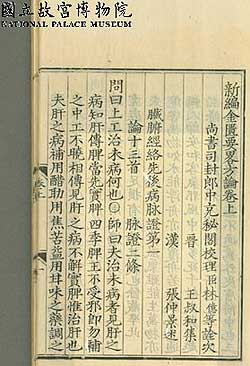 國立故宮博物院
NATIONAL PALACE MUSEUM
新編金匱要略方論卷上
尚書司封郎中充秘閣校理臣林億等詮次
晉 王叔和集
漢 張仲景述
臟腑經絡先後病脉證第一
論十三首 脉證二條
問曰上工治未病何也 師曰夫治未病者見肝之
病知肝傳脾當先實脾四季脾王不受邪即勿補
之中工不曉相傳見肝之病不解實脾惟治肝也
夫肝之病補用酸助用焦苦益用甘味之藥調之